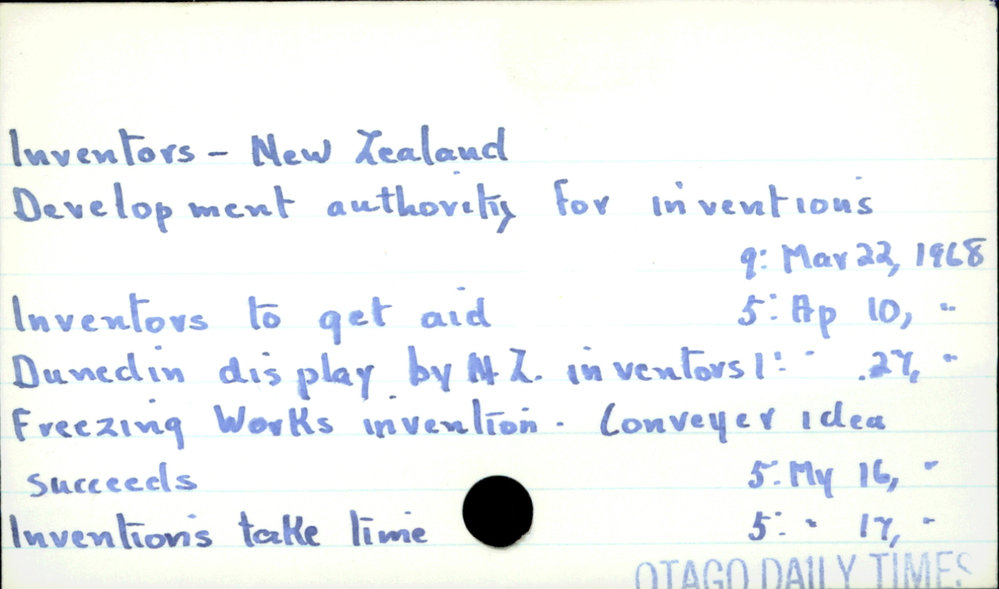 Inventors - New Zealand
Development authority for inventions
9: Mar 22, 1968
Inventors to get aid 5: Ap 10, "
Dunedin display by N.Z. inventors 1: " 27, "
Freezing Works invention - Conveyer idea
succeeds 5: My 16, "
Inventions take time 5: " 17, "
OTAGO DAILY TIMES